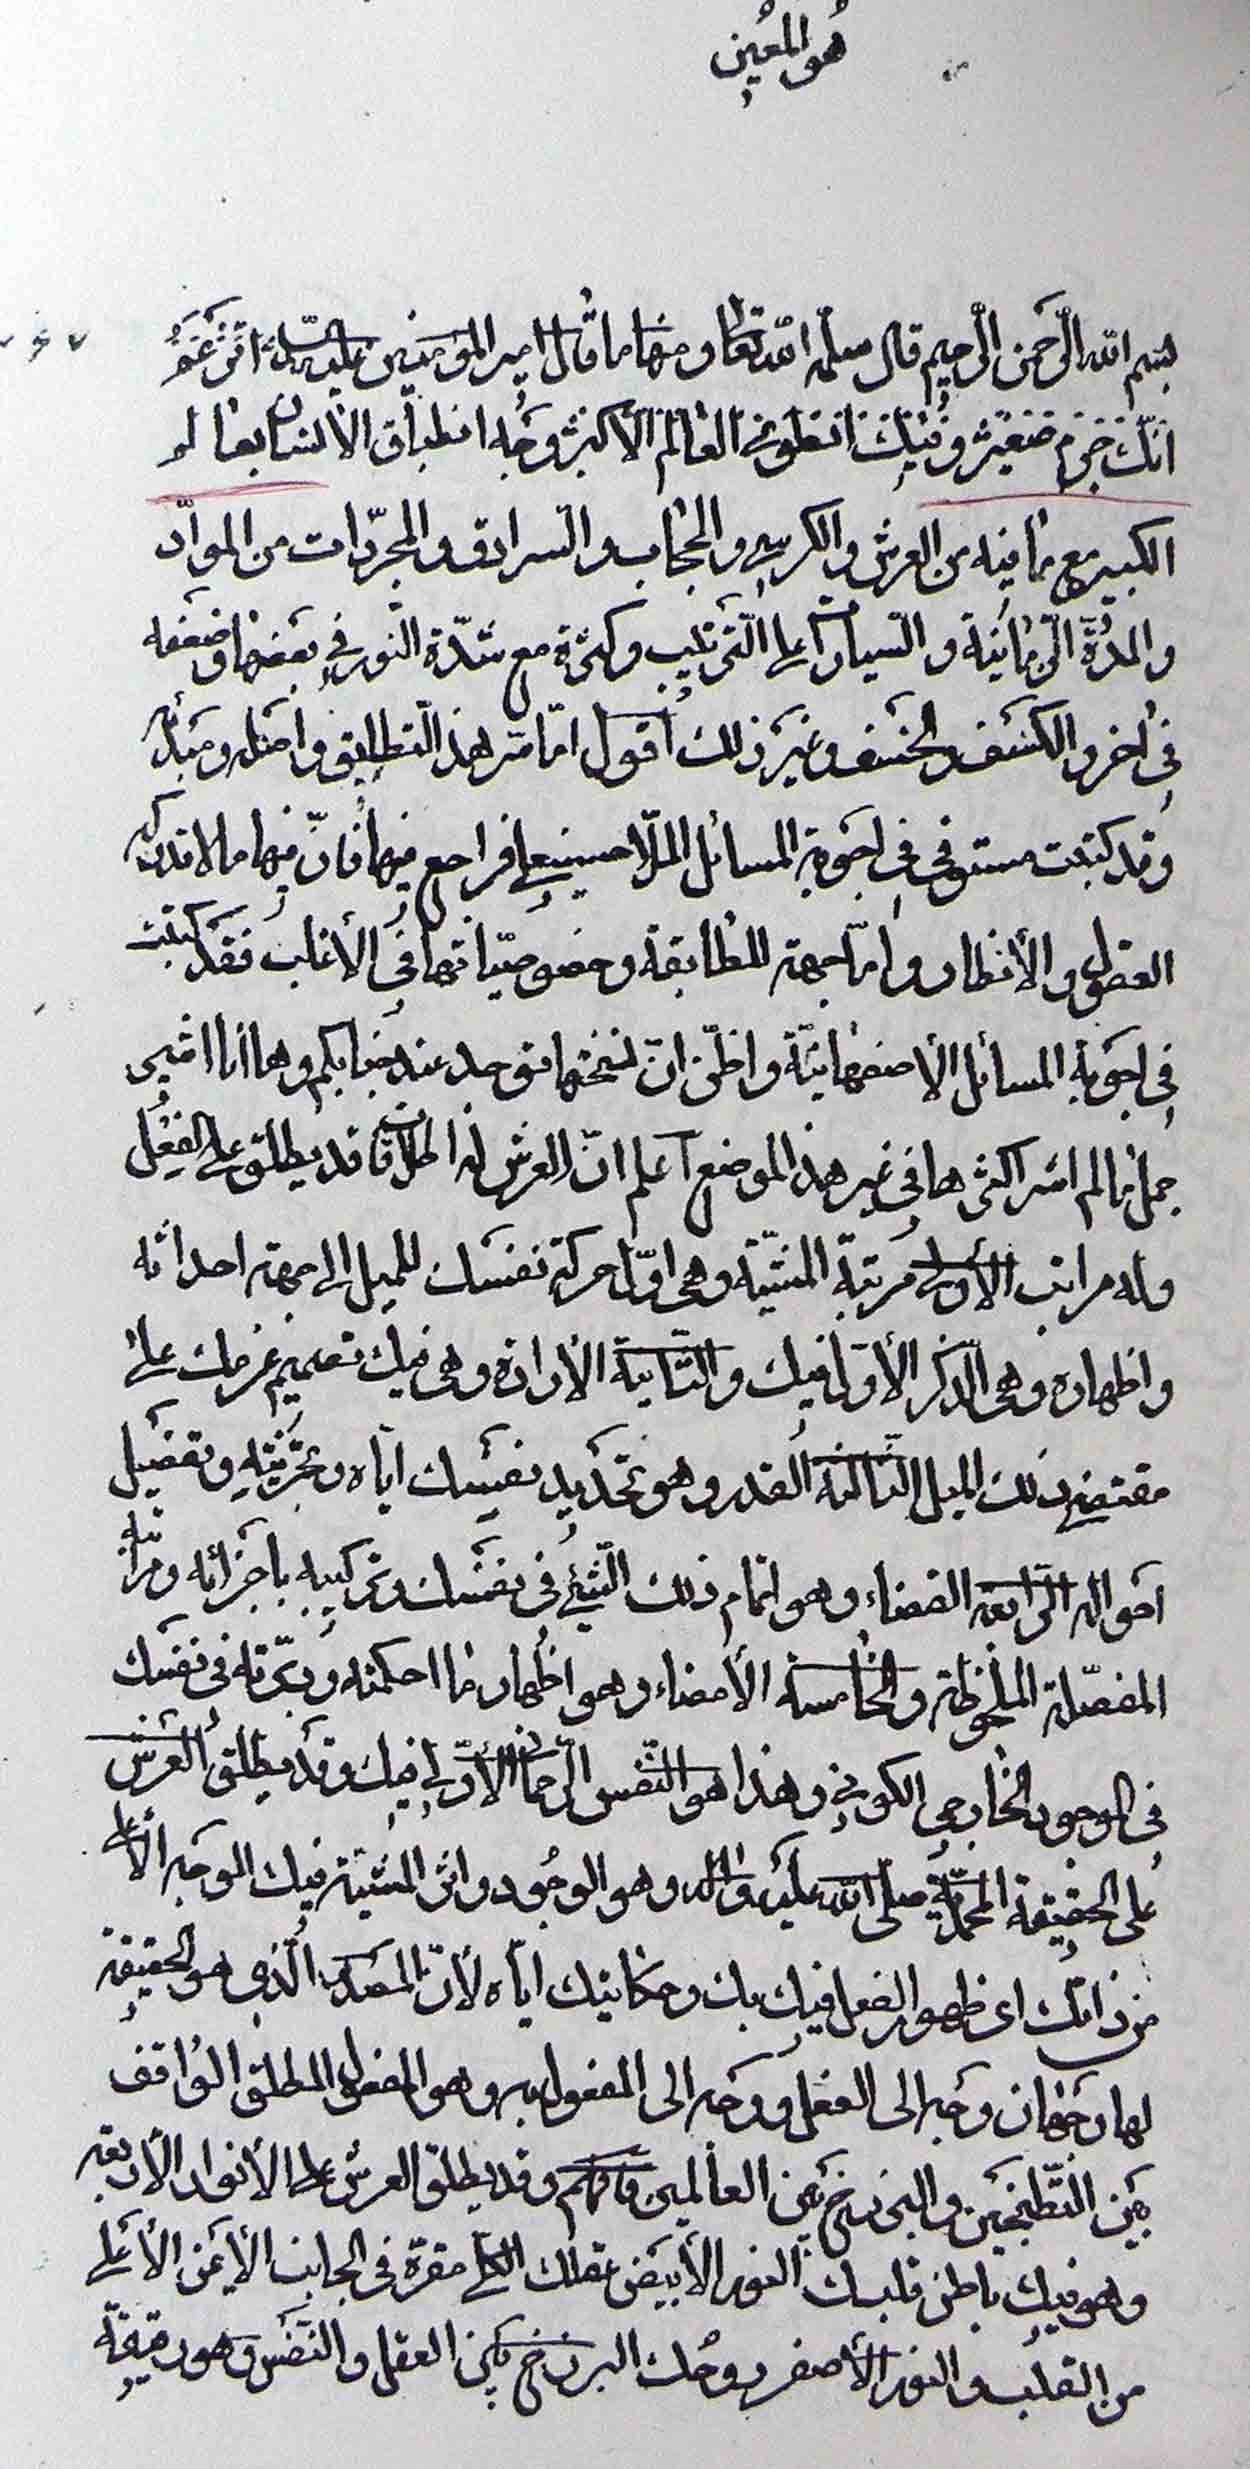 هو المعین
بسم الله الرحمن الرحیم قال سلمه الله تعالی و منها ما قال امیر المؤمنین علیه السلام اتزعم
انك جرم صغیر و فیك انطوی العالم الأكبر وجه انطباق الانسان بعالم
الكبیر مع ما فیه من العرش و الكرسي و الحجاب و السرادق و المجردات من المواد
و المدة الزمانیة و السیارات علی الترتیب و كثرة مع شدة النور في بعضها و ضعفه
في اخر و الكسف و الخسف و غیر ذلك اقول اما سر هذا التطابق و اصله و مبدئه
و قد كتبت مستوفی في اجوبة المسائل الملا حسینعلي فراجع فیها فان فیها ما لا تدركه
العقول و الأنظار و اما جهة المطابقة و خصوصیاتها في الأغلب فقد كتبت
في اجوبة المسائل الأصفهانیة و اظن ان نسختها توجد عند جنابكم و ها انا اشیر
جملا ما لم اشر اكثرها في غیر هذا الموضع اعلم ان العرش له اطلاقات قد یطلق علی الفعل
و له مراتب الأولی مرتبة المشیة و هي اول حركة نفسك للمیل الی جهة احداثه
و اظهاره و هي الذكر الأول فیك و الثانیة الأرادة و هي فیك تصمیم عزمك علی
مقتضی ذلك المیل الثالثة القدر و هو تحدید نفسك ایاه و تجزئته و تفصیل
احواله الرابعة القضاء و هو اتمام ذلك الشيء في نفسك و تركیبه باجزائه و مراتبه
المفصلة الملحوظة و الخامسة الأمضاء و هو اظهار ما احكمته و دبرته في نفسك
في الوجود الخارجي الكوني و هذا هو النفس الرحماني الأولي فیك و قد یطلق العرش
علی الحقیقة المحمدیة صلی الله علیه و اله و هو الوجود و اثر المشیة فیك الوجه الأعلی
من ذاتك اي ظهور الفعل فیك بك و حكایتك ایاه لأن المصدر الذي هو الحقیقة
لها وجهان وجه الی الفعل و وجه الی المفعول به و هو المفعول المطلق الواقف
بین التطنجین و البرزخ بین العالمین فافهم و قد یطلق العرش علی الأنوار الأربعة
و هو فیك باطن قلبك النور الأبیض عقلك الكلي مقره في الجانب الأیمن الأعلی
من القلب و النور الأصفر روحك البرزخ بین العقل و النفس و هو رقیقة